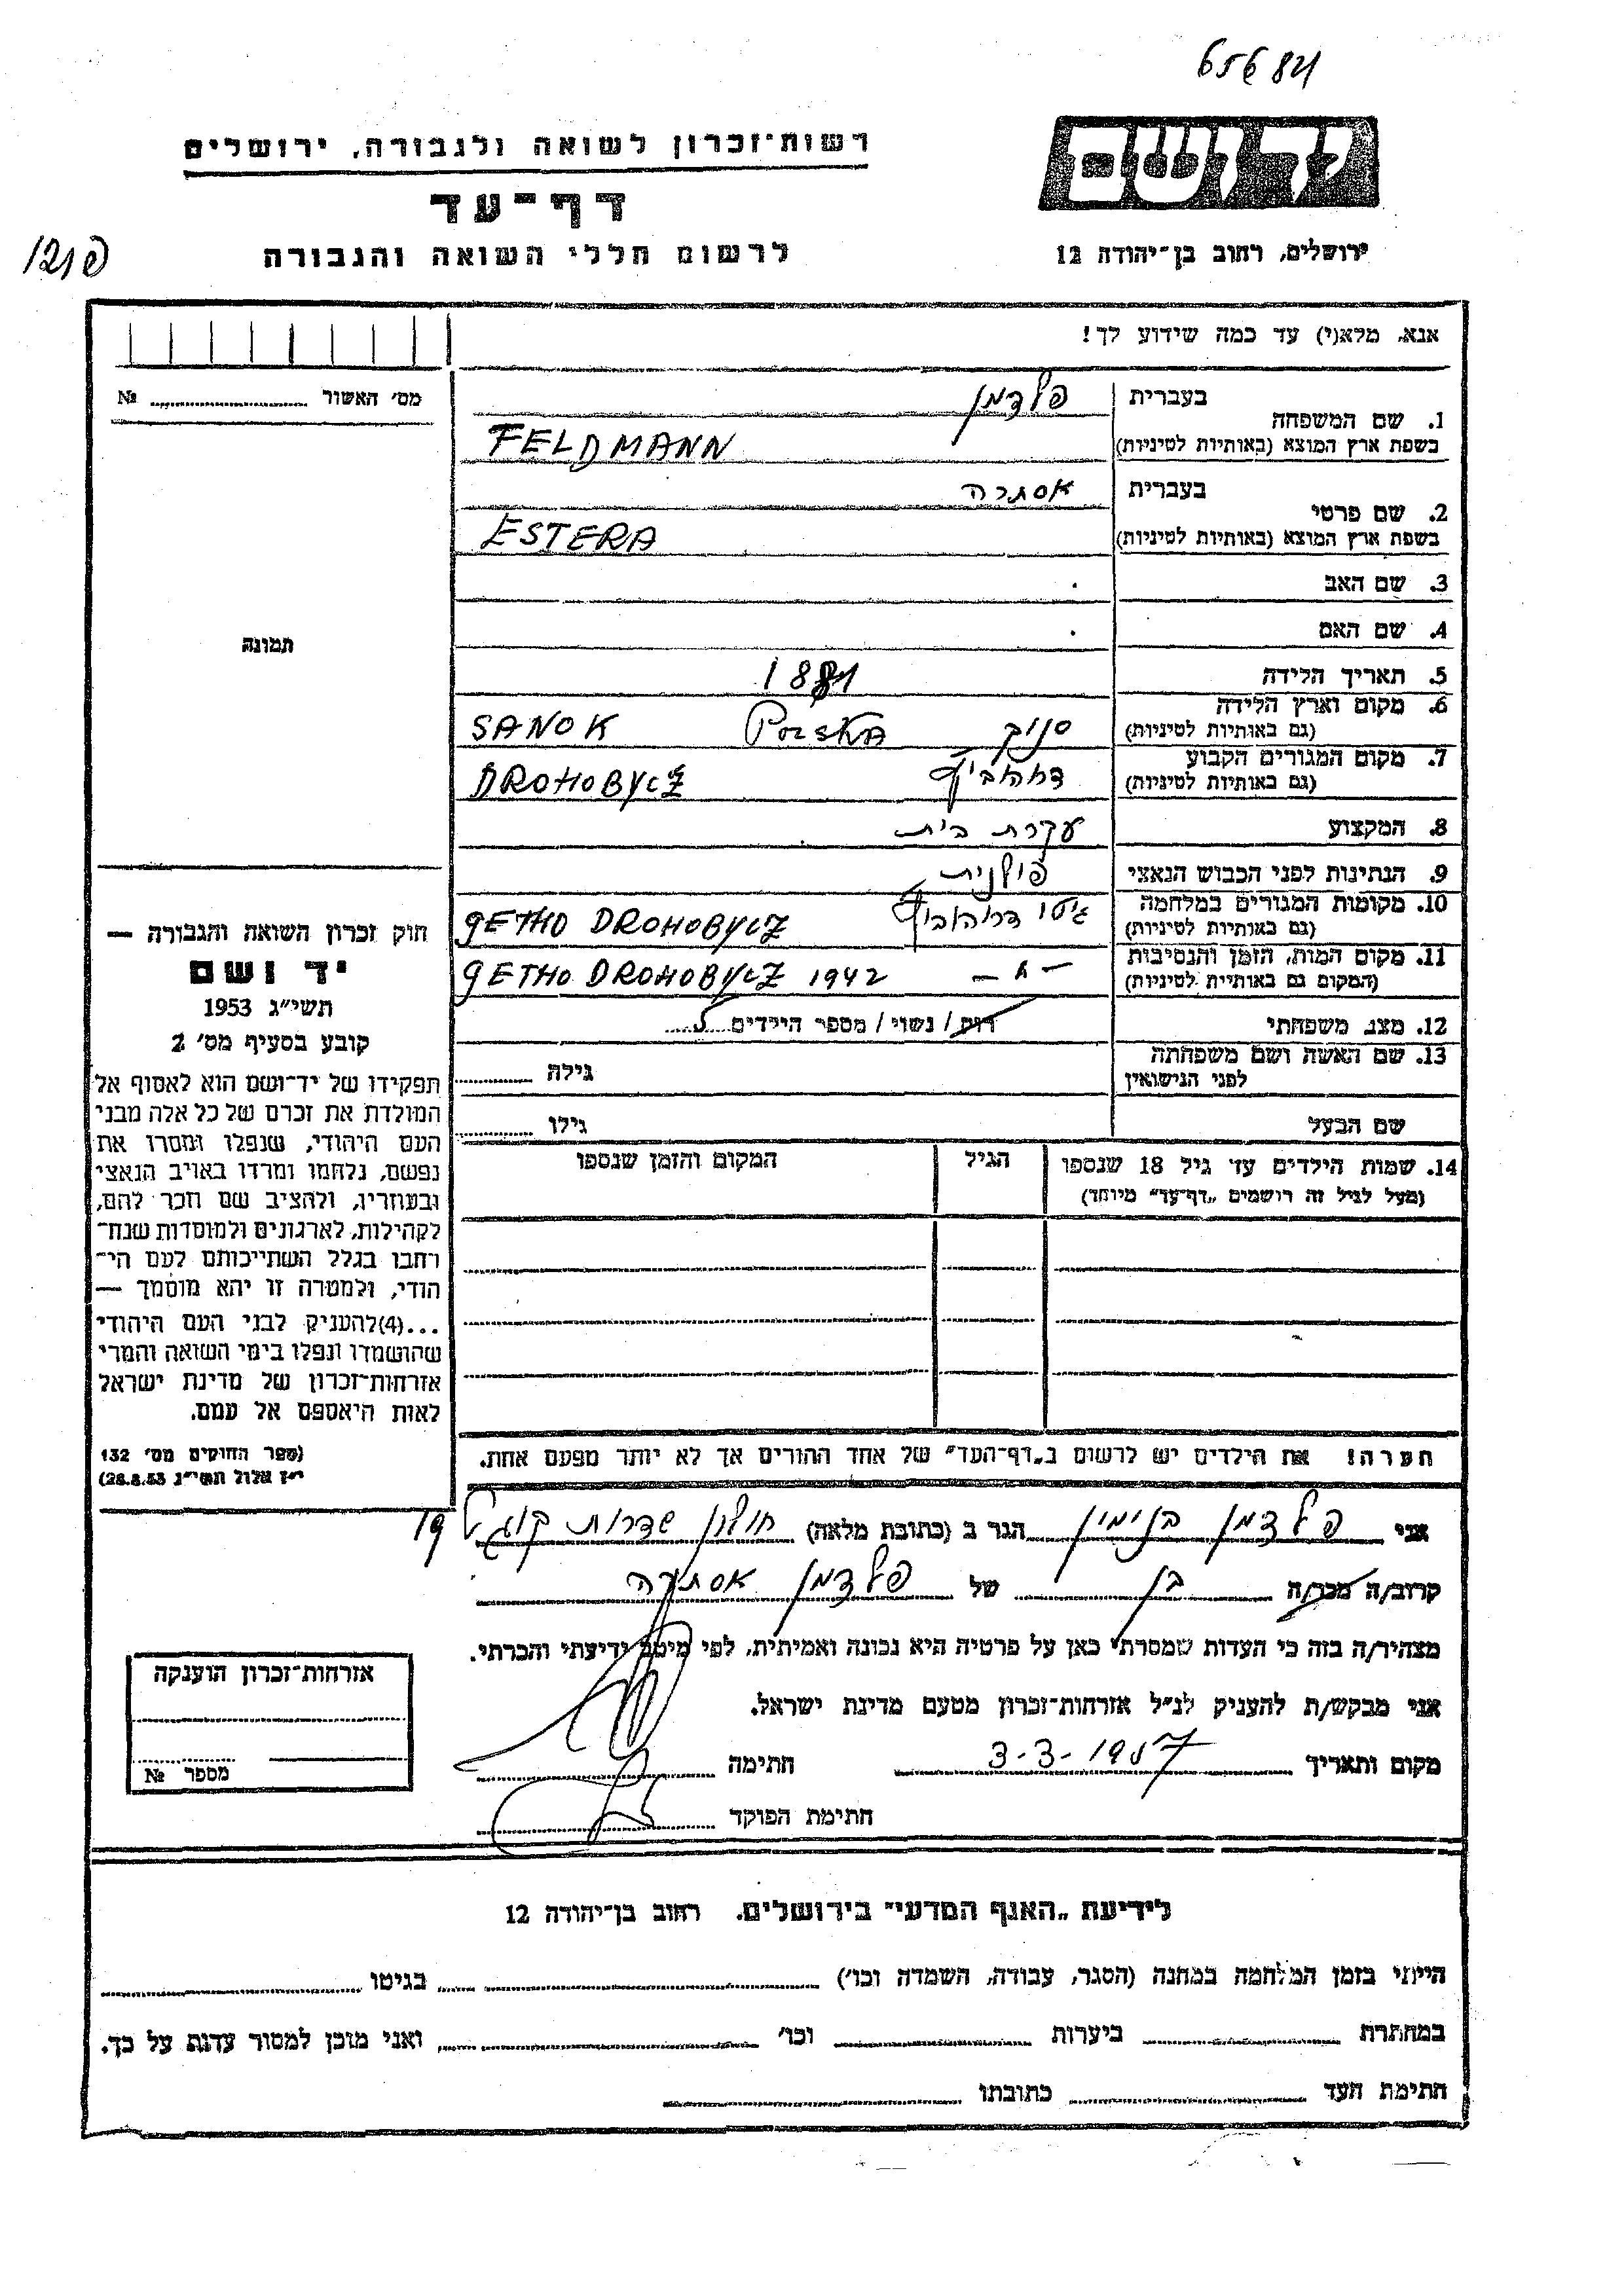 65684
רשות־זכרון לשואה ולגבורה, ירושלים
דף־עד
לרשום חללי השואה והגבורה
ירושלים, רחוב בן־יהודה 12
אנא, מלא(י) עד כמה שידוע לך!
מס׳ האשור № 
1. שם המשפחה
בעברית פלדמן
בשפת ארץ המוצא (באותיות לטיניות) FELDMANN
2. שם פרטי
בעברית אסתרה
בשפת ארץ המוצא (באותיות לטיניות) ESTERA
3. שם האב
4. שם האם
5. תאריך הלידה
6. מקום וארץ הלידה (גם באותיות לטיניות) סנוק Polska SANOK
7. מקום המגורים הקבוע (גם באותיות לטיניות) DROHOBYCZ
8. המקצוע עקרת בית
9. הנתינות לפני הכבוש הנאצי פולנית
10. מקומות המגורים במלחמה (גם באותיות לטיניות) גיטו GETHO DROHOBYCZ
11. מקום המות, הזמן והנסיבות (המקום גם באותיות לטיניות) GETHO DROHOBYCZ 1942
12. מצב משפחתי רווק / נשוי / מספר הילדים 5
13. שם האשה ושם משפחתה לפני הנישואין גילה
שם הבעל גילו
14. שמות הילדים עד גיל 18 שנספו (מעל לגיל זה רושמים „דף־עד" מיוחד) הגיל המקום והזמן שנספו
הערה! את הילדים יש לרשום ב„דף־העד" של אחד ההורים אך לא יותר מפעם אחת.
תמונה
חוק זכרון השואה והגבורה —
יד ושם
תשי״ג 1953
קובע בסעיף מס׳ 2
תפקידו של יד־ושם הוא לאסוף אל
המולדת את זכרם של כל אלה מבני
העם היהודי, שנפלו ומסרו את
נפשם, נלחמו ומרדו באויב הנאצי
ובעוזריו, ולהציב שם וזכר להם,
לקהילות, לארגונים ולמוסדות שנח־
רבו בגלל השתייכותם לעם הי־
הודי, ולמטרה זו יהא מוסמך —
...(4)להעניק לבני העם היהודי
שהושמדו ונפלו בימי השואה והמרי
אזרחות־זכרון של מדינת ישראל
לאות היאספם אל עמם.
(ספר החוקים מס׳ 132
י״ז אלול תשי״ג 28.8.53)
אני פלדמן בנימין הגר ב (כתובת מלאה) חולון שדרות קוגל 19
קרוב/ה מכר/ה בן של פלדמן אסתרה
מצהיר/ה בזה כי העדות שמסרתי כאן על פרטיה היא נכונה ואמיתית, לפי מיטב ידיעתי והכרתי.
אני מבקש/ת להעניק לנ״ל אזרחות־זכרון מטעם מדינת ישראל.
מקום ותאריך 3-3-1957 חתימה
חתימת הפוקד
אזרחות־זכרון הוענקה
מספר №
לידיעת „האגף המדעי" בירושלים. רחוב בן־יהודה 12
הייתי בזמן המלחמה במחנה (הסגר, עבודה, השמדה וכו׳) בגיטו
במחתרת ביערות וכו׳ ואני מוכן למסור עדות על כך.
חתימת העד כתובתו